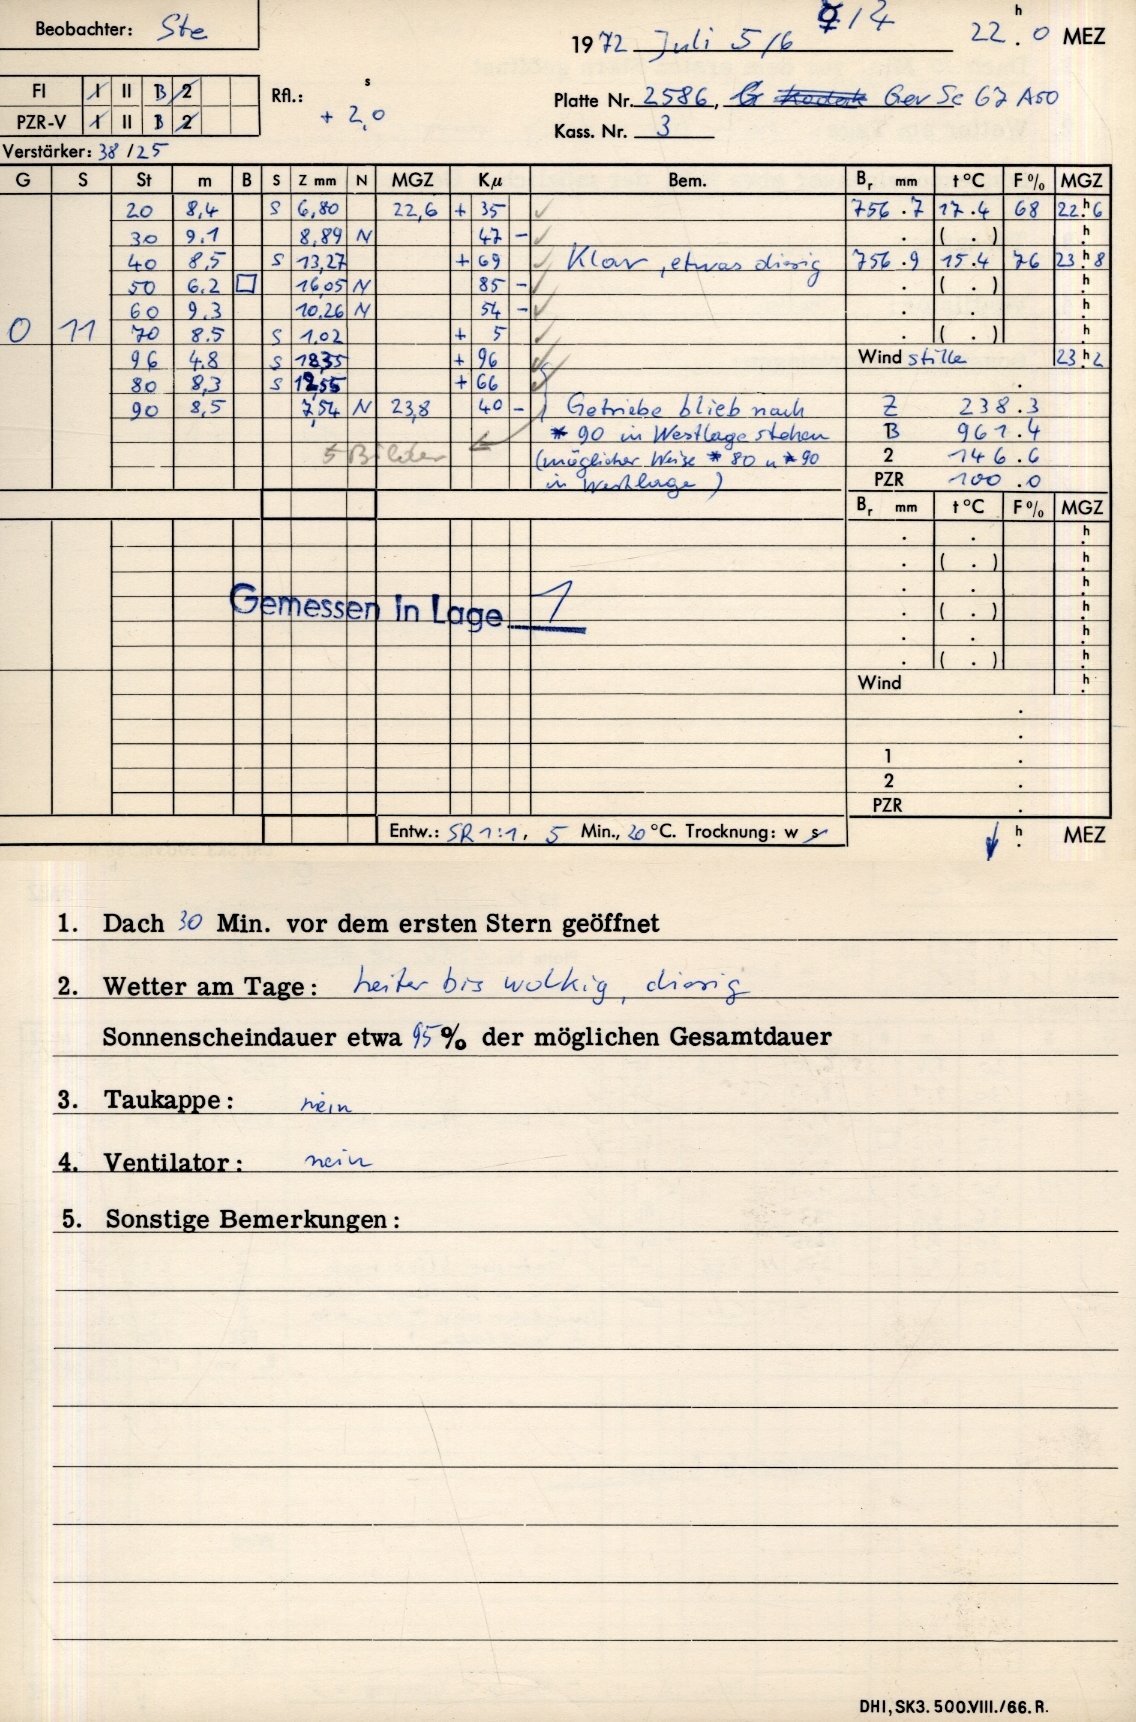 Beobachter: Ste
1972 Juli 5/6 22.h0 MEZ
FI I II B 2
PZR-V I II B 2
Rfl.: s + 2,0
Platte Nr. 2586, G Kodak Gev Sc 67 A50
Kass. Nr. 3
Verstärker: 38/25
G S St m B S Z mm N MGZ Kμ Bem. Br mm t°C F% MGZ
20 8,4 S 6,80 22,6 + 35 ✓ 756.7 17.4 68 22.h6
30 9.1 8,89 N 47 - ✓ . ( . ) h
40 8,5 S 13,27 + 69 ✓ Klar, etwas diesig 756.9 15.4 76 23.h8
50 6.2 □ 16,05 N 85 - ✓ . ( . ) h
60 9.3 10.26 N 54 - ✓ . . h
0 11 70 8.5 S 1,02 + 5 ✓ . ( . ) h
96 4.8 S 18,35 + 96 ✓ Wind stille 23.h2
80 8,3 S 12,55 + 66 ✓ .
90 8,5 7,54 N 23,8 40 - Getriebe blieb nach Z 238.3
* 90 in Westlage stehen B 961.4
5 Bilder (möglicher Weise * 80 u * 90 2 146.6
in Westlage) PZR 100.0
Br mm t°C F% MGZ
. . h
. ( . ) h
. . h
Gemessen in Lage 1 . ( . ) h
. . h
. ( . ) h
Wind h
.
.
1 .
2 .
PZR .
Entw.: SR 1:1, 5 Min., 20 °C. Trocknung: w s h MEZ
1. Dach 30 Min. vor dem ersten Stern geöffnet
2. Wetter am Tage: heiter bis wolkig, diesig
Sonnenscheindauer etwa 95% der möglichen Gesamtdauer
3. Taukappe: nein
4. Ventilator: nein
5. Sonstige Bemerkungen:
DHI, SK3. 500.VIII./66. R.